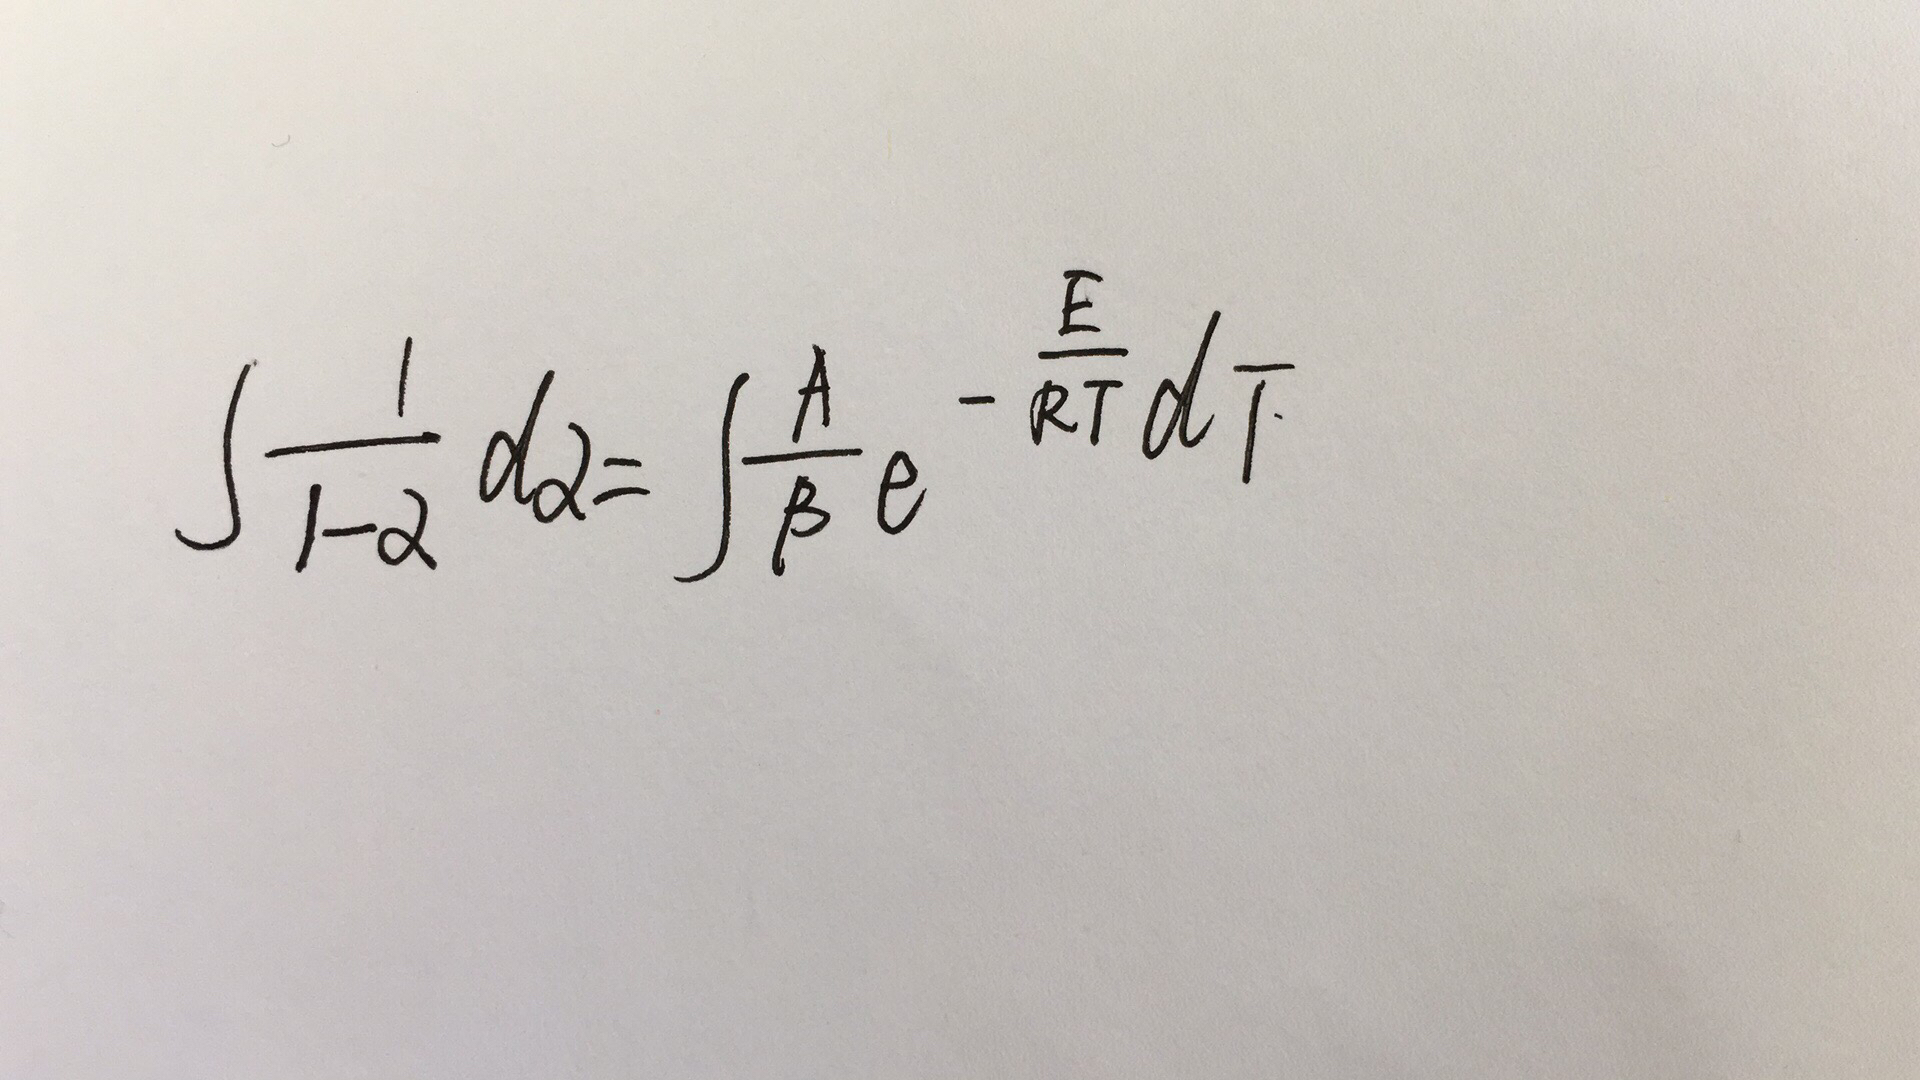 ∫ 1/(1-α) dα = ∫ A/β e^(-E/RT) dT